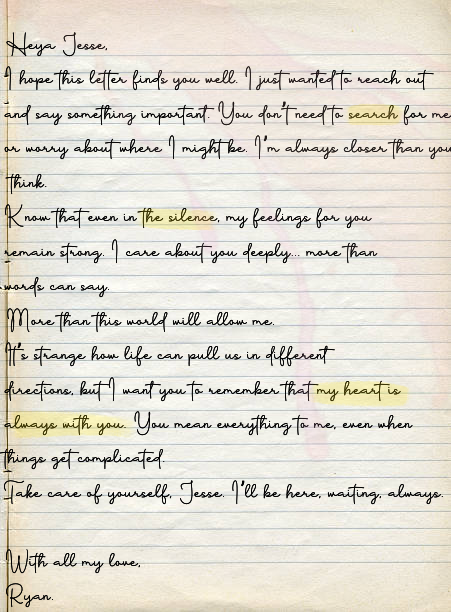 Heya Jesse,
I hope this letter finds you well. I just wanted to reach out
and say something important. You don't need to search for me
or worry about where I might be. I'm always closer than you
think.
Know that even in the silence, my feelings for you
remain strong. I care about you deeply... more than
words can say.
More than this world will allow me.
It's strange how life can pull us in different
directions, but I want you to remember that my heart is
always with you. You mean everything to me, even when
things get complicated.
Take care of yourself, Jesse. I'll be here, waiting, always.
With all my love,
Ryan.